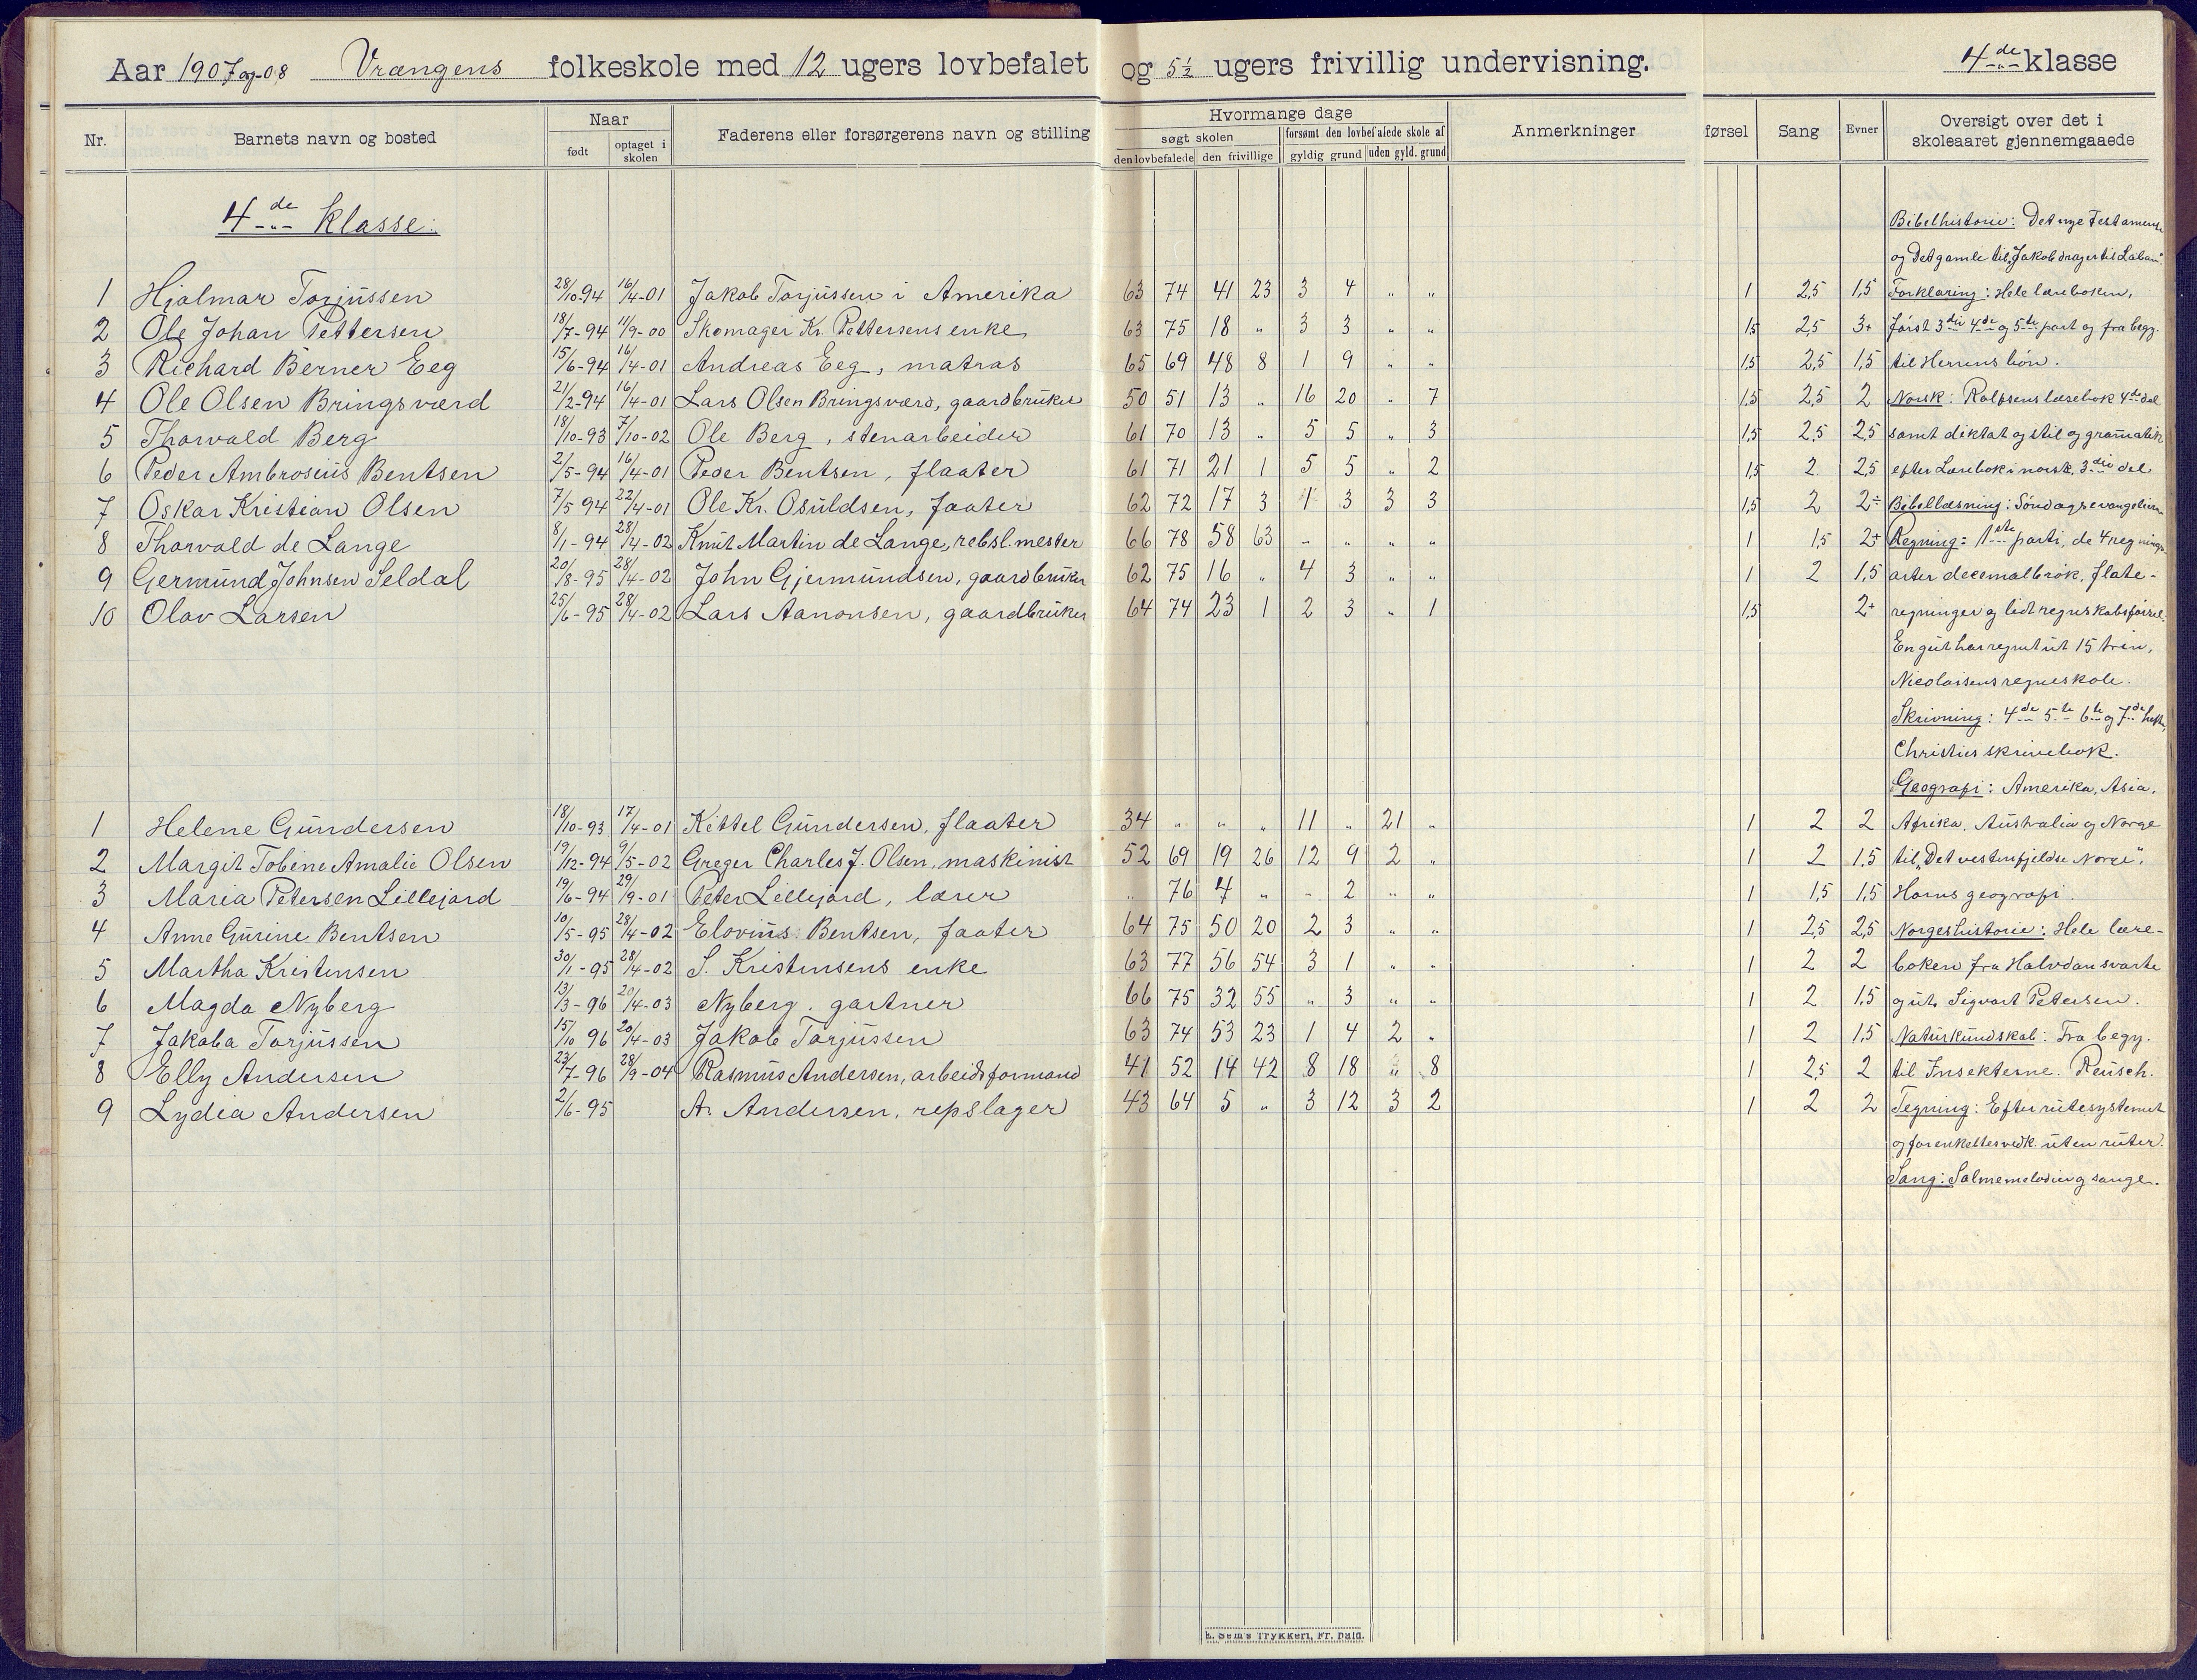 Aar 1907 og -08 Vrængens folkeskole med 12 ugers lovbefalet og 5½ ugers frivillig undervisning. 4de klasse
Nr. Barnets navn og bosted Naar født optaget i skolen Faderens eller forsørgerens navn og stilling Hvormange dage søgt skolen den lovbefalede den frivillige forsømt den lovbefalede skole af gyldig grund uden gyld. grund Anmerkninger førsel Sang Evner Oversigt over det i skoleaaret gjennemgaaede
4de klasse:
Bibelhistorie: Det nye Testamente
og Det gamle til „Jakob drager til Laban".
1 Hjalmar Torjussen 28/10-94 16/4-01 Jakob Torjussen i Amerika 63 74 41 23 3 4 " " 1 2,5 1,5 Forklaring: Hele læreboken,
2 Ole Johan Pettersen 18/7-94 11/9-00 Skomager Kr. Pettersens enke 63 75 18 " 3 3 " " 1,5 2,5 3+ først 3die 4de og 5te part og fra begy.
3 Richard Berner Eeg 15/6-94 16/4-01 Andreas Eeg, matros 65 69 48 8 1 9 " " 1,5 2,5 1,5 til Herrens bøn.
4 Ole Olsen Bringsværd 21/2-94 16/4-01 Lars Olsen Bringsværd, gaardbruker 50 51 13 " 16 20 " 7 1,5 2,5 2 Norsk: Rolfsens læsebok 4de del
5 Thorvald Berg 18/10-93 7/10-02 Ole Berg, stenarbeider 61 70 13 " 5 5 " 3 1,5 2,5 2,5 samt diktat og stil og gramatik
6 Peder Ambrosius Bentsen 2/5-94 16/4-01 Peder Bentsen, flaater 61 71 21 1 5 5 " 2 1,5 2 2,5 efter Lærebok i norsk, 3die del
7 Oskar Kristian Olsen 7/5 94 22/4-01 Ole Kr. Osuldsen, faater 62 72 17 3 1 3 3 3 1,5 2 2÷ Bibellæsning: Søndagsevangelierne
8 Thorvald de Lange 8/1-94 28/4-02 Knut Martin de Lange, rebsl.mester 66 78 58 63 " " " " 1 1,5 2+ Regning: 1ste parti, de 4 regnings-
9 Germund Johnsen Seldal 20/8-95 28/4-02 John Gjermundsen, gaardbruker 62 75 16 " 4 3 " " 1 2 1,5 arter decemalbrøk, flate-
10 Olav Larsen 25/6-95 28/4-02 Lars Aanonsen, gaardbruker 64 74 23 1 2 3 " 1 1,5 2+ regninger og lidt regnskabsførsel.
En gut har regnet ut 15 trin,
Nicolaisens regneskole.
Skrivning: 4de 5te 6te og 7de hefte,
Christies skrivebok.
Geografi: Amerika, Asia,
1 Helene Gundersen 18/10-93 17/4-01 Kittel Gundersen, flaater 34 " " " 11 " 21 " 1 2 2 Afrika, Australia og Norge
2 Margit Tobine Amalie Olsen 19/12-94 9/5-02 Greger Charles J. Olsen, maskinist 52 69 19 26 12 9 2 " 1 2 1,5 til „Det vestenfjeldse Norge".
3 Maria Petersen Lillejord 19/6-94 29/9-01 Peter Lillejord, lærer " 76 4 " - 2 " " 1 1,5 1,5 Horns geografi.
4 Anne Gurine Bentsen 10/5-95 28/4-02 Elovius Bentsen, faater 64 75 50 20 2 3 " " 1 2,5 2,5 Norgeshistorie: Hele lære-
5 Martha Kristensen 30/1-95 28/4-02 S. Kristensens enke 63 77 56 54 3 1 " " 1 2 2 boken fra Halvdan svarte
6 Magda Nyberg 13/3-96 20/4-03 Nyberg, gartner 66 75 32 55 " 3 " " 1 2 1,5 og ut. Sigvart Petersen.
7 Jakoba Torjussen 15/10 96 20/4-03 Jakob Torjussen 63 74 53 23 1 4 2 " 1 2 1,5 Naturkundskab: Fra begy.
8 Elly Andersen 23/7-96 28/9-04 Rasmus Andersen, arbeidsformand 41 52 14 42 8 18 " 8 1 2,5 2 til Insekterne. Reusch.
9 Lydia Andersen 2/6-95 A. Andersen, repslager 43 64 5 " 3 12 3 2 1 2 2 Tegning: Efter rutesystemet
og for enkeltes vedk. uten ruter.
Sang: Salmemelodier og sange.
E. Sems Trykkeri, Fr.hald.